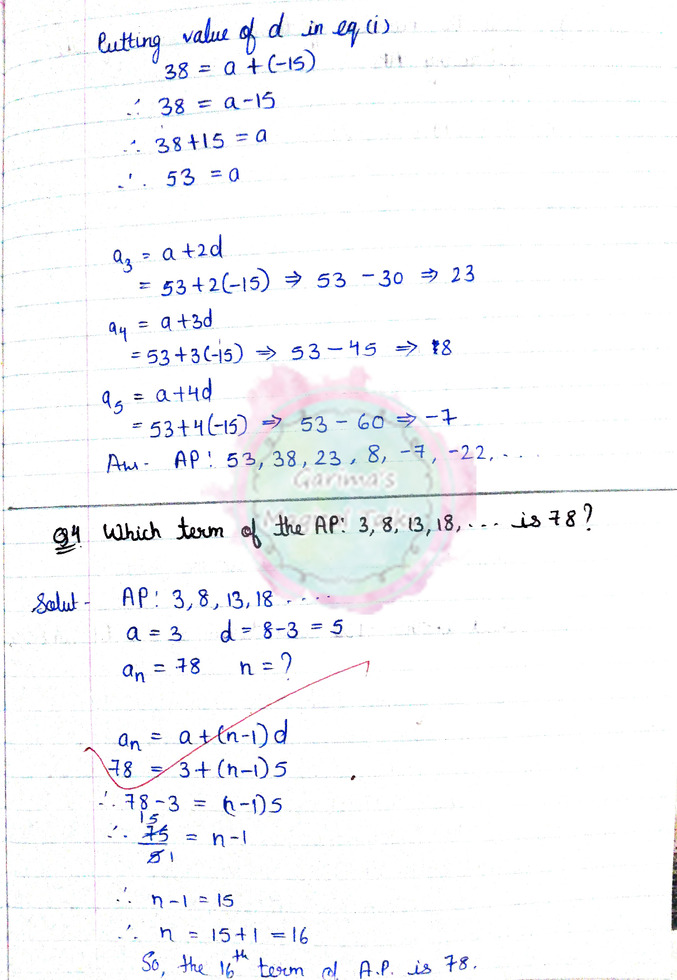 Putting value of d in eq(i)
38 = a + (-15)
∴ 38 = a - 15
∴ 38+15 = a
∴ 53 = a
a₃ = a + 2d
= 53+2(-15) ⇒ 53 - 30 ⇒ 23
a₄ = a + 3d
= 53+3(-15) ⇒ 53 - 45 ⇒ 8
a₅ = a+4d
= 53+4(-15) ⇒ 53 - 60 ⇒ -7
Ans - AP: 53, 38, 23, 8, -7, -22, ...
Garima's
Q4 Which term of the AP: 3, 8, 13, 18, ... is 78?
Solut - AP: 3, 8, 13, 18 ....
a = 3 d = 8-3 = 5
aₙ = 78 n = ?
aₙ = a+(n-1)d
78 = 3+(n-1)5
∴ 78-3 = (n-1)5
15
∴ 75/5 = n-1
1
∴ n-1 = 15
∴ n = 15+1 = 16
So, the 16th term of A.P. is 78.